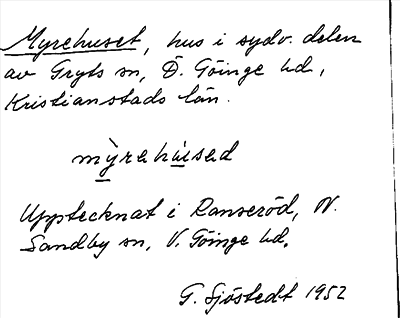 Myrehuset, hus i sydv. delen
av Gryts sn, Ö. Göinge hd,
Kristianstads län.
mỳrahúsad
Upptecknat i Ranseröd, N.
Sandby sn, V. Göinge hd.
G. Sjöstedt 1952